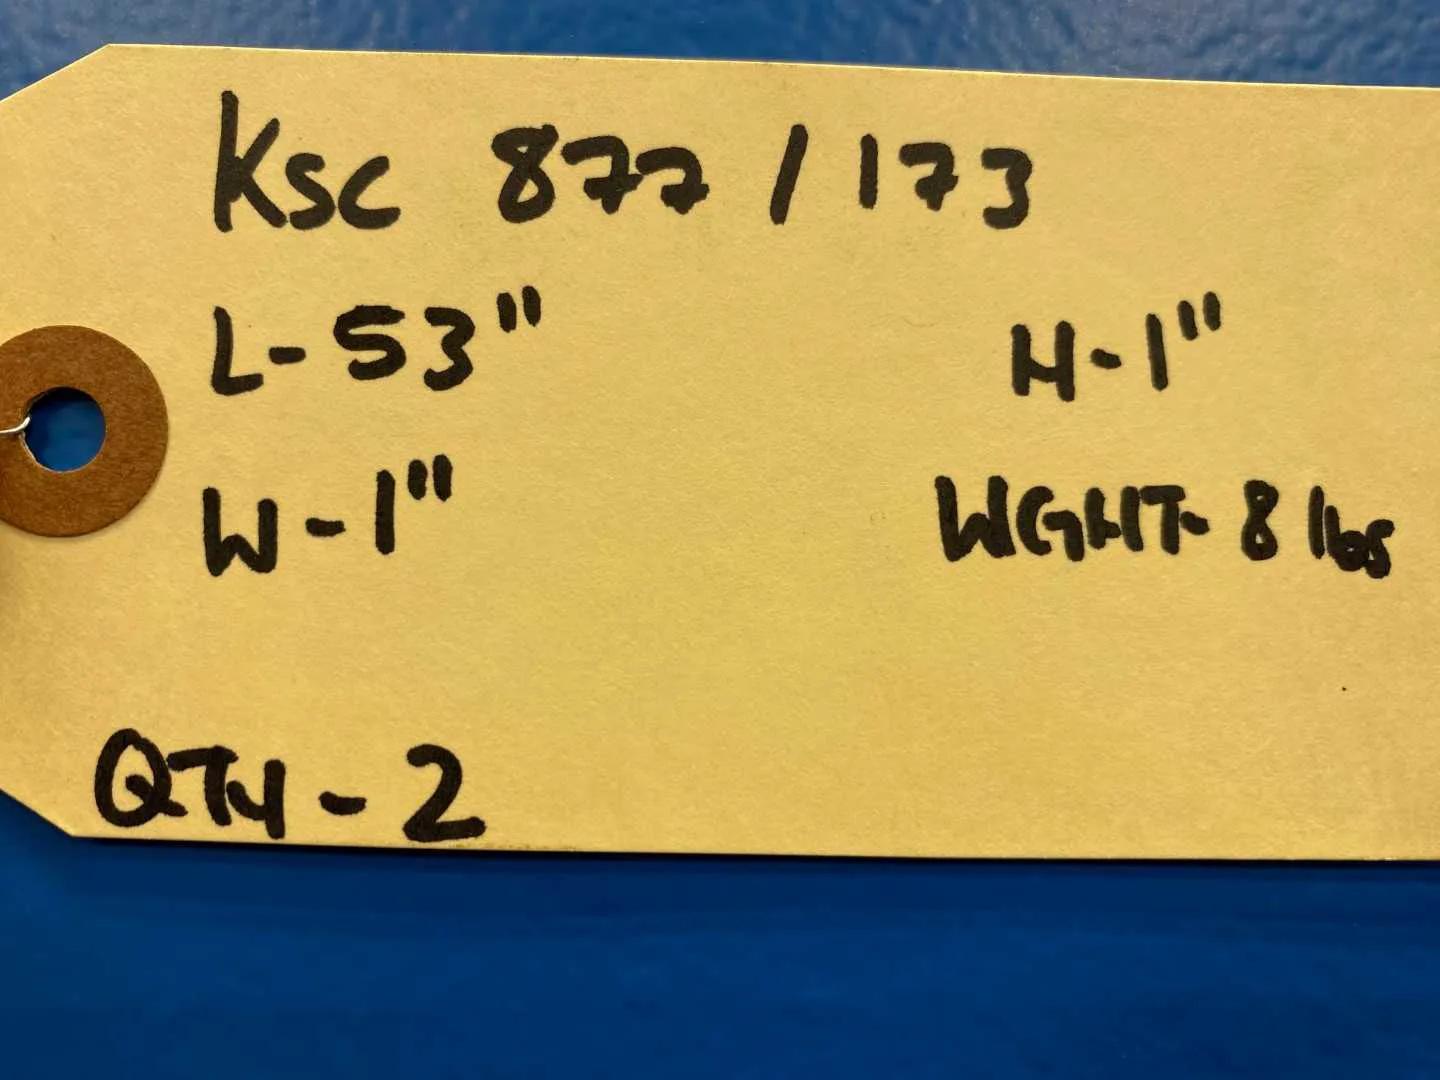 Ksc 877 / 173
L-53" H-1"
W-1" WGHT- 8 lbs
QTY-2